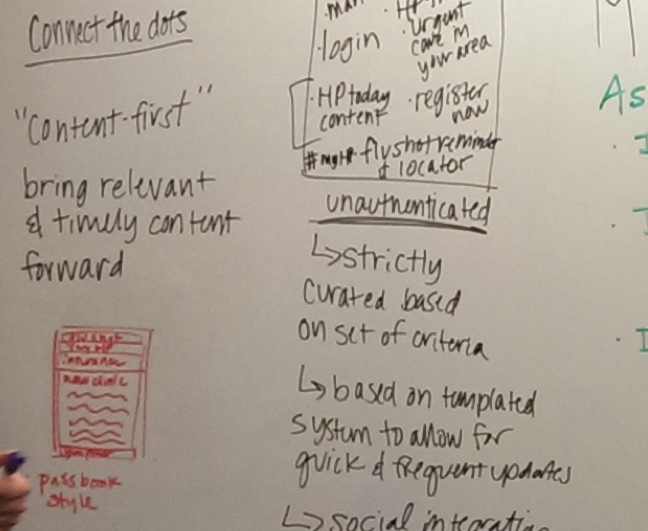 Connect the dots
"Content-first"
bring relevant
& timely content
forward
insurance
new clinic
passbook
style
· HP
· login · urgent
care in
your area
· HP today · register
content now
#myHP · flu shot reminder
& locator
unauthenticated
↳ strictly
curated based
on set of criteria
↳ based on templated
system to allow for
quick & frequent updates
↳ social integration
As